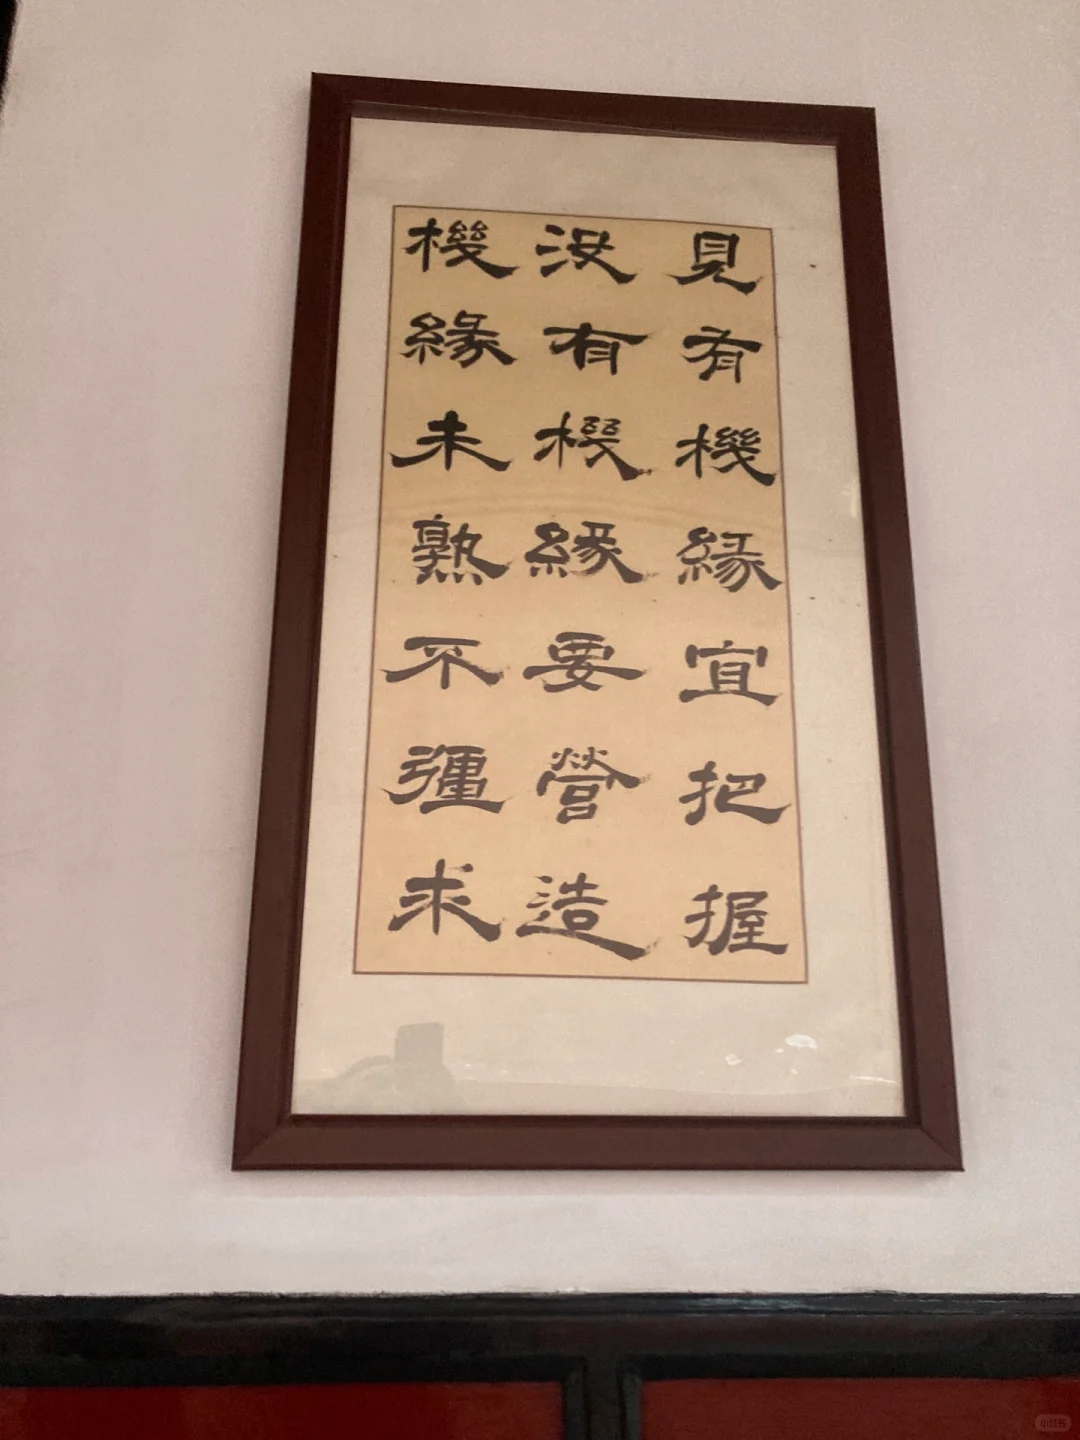 見有機緣宜把握
沒有機緣要營造
機緣未熟不彊求
小红书